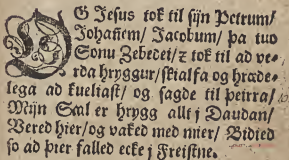 OG Jesus tok til sijn Petrum/
Johañem/ Jacobum/ þa tuo
Sonu Zebedei/ z tok til ad ve-
rda hryggur/ skialfa og hræde-
lega ad kueliast/ og sagde til þeirra/
Mijn Sæl er hrygg allt j Daudan/
Vered hier/ og vaked med mier/ Bidied
so ad þier falled ecke j Freistne.